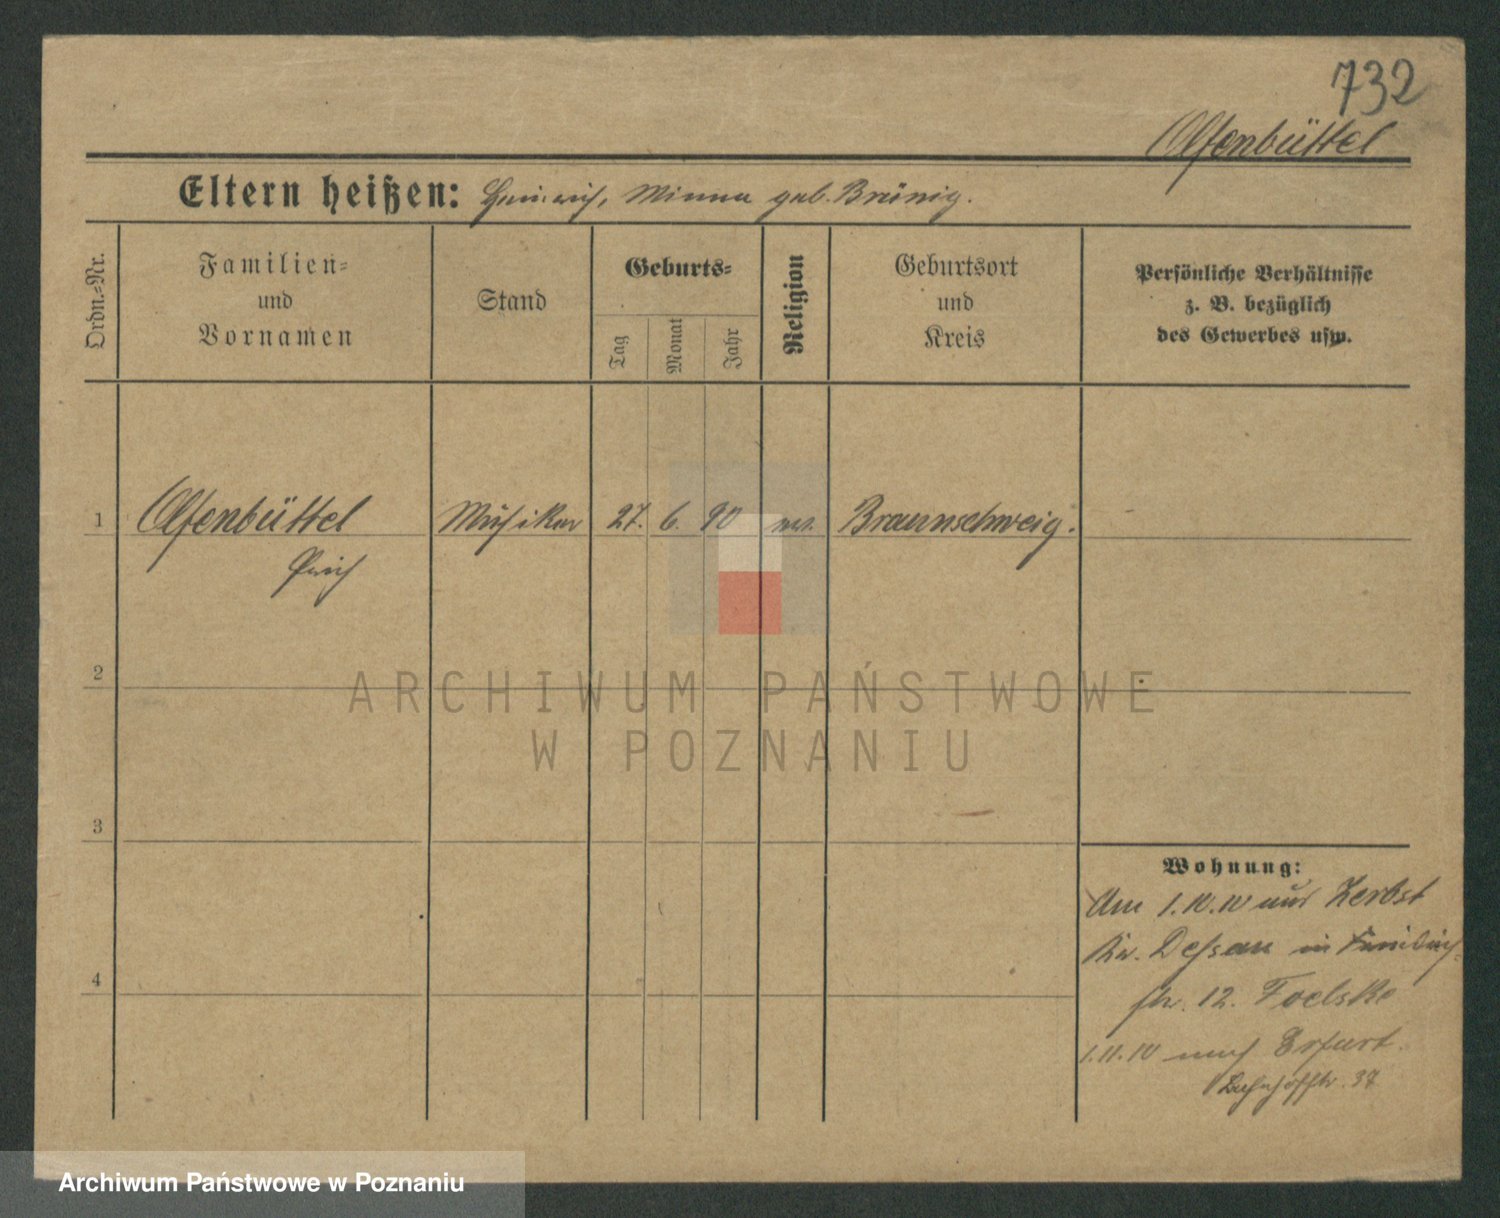 732
Olfenbüttel
Eltern heißen: Heinrich, Minna geb. Brünig.
Ordn.=Nr.
Familien=
und
Vornamen
Stand
Geburts=
Tag
Monat
Jahr
Religion
Geburtsort
und
Kreis
Persönliche Verhältnisse
z. B. bezüglich
des Gewerbes usw.
1 Olfenbüttel Musiker 27. 6. 90 Braunschweig.
Erich
2
3
4
Wohnung:
Am 1.10.10 aus Zerbst
Kr. Dessau in
str. 12. Foelske
1.11.10 nach Erfurt.
Bahnhofstr. 37
ARCHIWUM PAŃSTWOWE
W POZNANIU
Archiwum Państwowe w Poznaniu